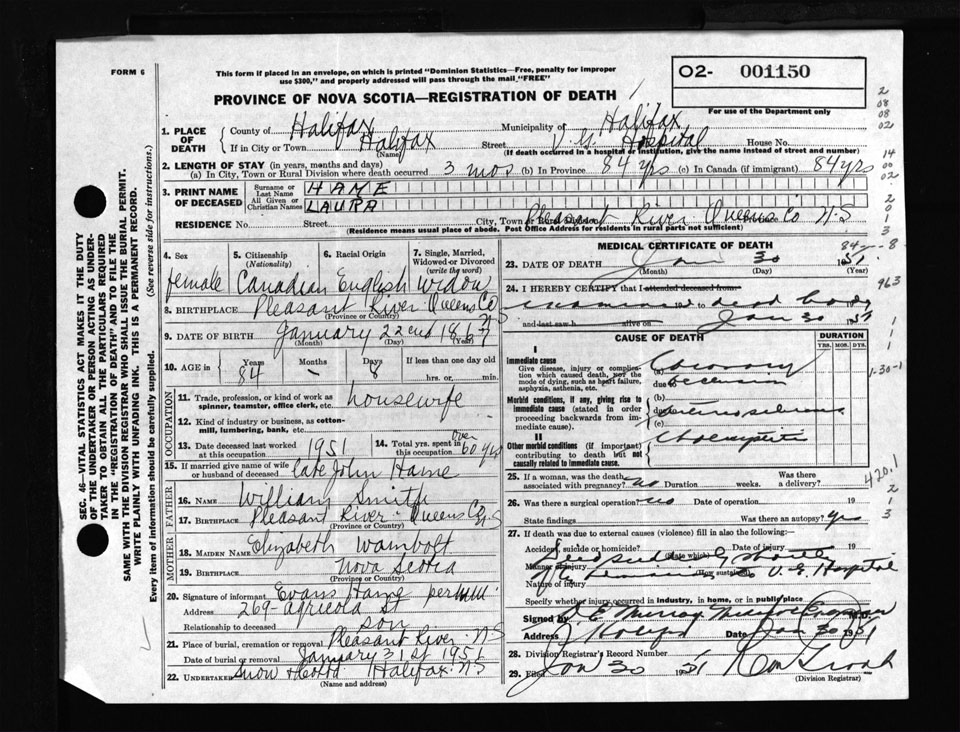 FORM 6
This form if placed in an envelope, on which is printed "Dominion Statistics—Free, penalty for improper
use $300," and properly addressed will pass through the mail "FREE"
PROVINCE OF NOVA SCOTIA—REGISTRATION OF DEATH
O2- 001150
For use of the Department only
1. PLACE OF DEATH
County of Halifax Municipality of Halifax
If in City or Town Halifax Street V.G. Hospital House No.
(Name) (If death occurred in a hospital or institution, give the name instead of street and number)
2. LENGTH OF STAY (in years, months and days)
(a) In City, Town or Rural Division where death occurred 3 mos (b) In Province 84 yrs (c) In Canada (if immigrant) 84 yrs
3. PRINT NAME OF DECEASED
Surname or Last Name HAME
All Given or Christian Names LAURA
RESIDENCE No. Street City, Town or Rural Pleasant River Queens Co N.S
(Residence means usual place of abode. Post Office Address for residents in rural parts not sufficient)
4. Sex female
5. Citizenship (Nationality) Canadian
6. Racial Origin English
7. Single, Married, Widowed or Divorced (write the word) Widow
8. BIRTHPLACE Pleasant River Queens Co N.S
(Province or Country)
9. DATE OF BIRTH January 22nd 1867
(Month) (Day) (Year)
10. AGE in Years 84 Months – Days 8 If less than one day old
hrs. or min.
OCCUPATION
11. Trade, profession, or kind of work as
spinner, teamster, office clerk, etc. housewife
12. Kind of industry or business, as cotton-
mill, lumbering, bank, etc.
13. Date deceased last worked
at this occupation 1951
14. Total yrs. spent in
this occupation over 60 yrs
15. If married give name of wife
or husband of deceased Late John Hame
FATHER
16. NAME William Smith
17. BIRTHPLACE Pleasant River - Queens Co N.S
(Province or Country)
MOTHER
18. MAIDEN NAME Elizabeth Wambolt
19. BIRTHPLACE Nova Scotia
(Province or Country)
20. Signature of informant Evans Hame per
Address 269 Agricola St
Relationship to deceased son
21. Place of burial, cremation or removal Pleasant River - N.S
Date of burial or removal January 31st 1951
22. UNDERTAKER Snow Halifax N.S
(Name and address)
MEDICAL CERTIFICATE OF DEATH
23. DATE OF DEATH Jan 30 1951
(Month) (Day) (Year)
24. I HEREBY CERTIFY that I attended deceased from
examined dead body
and last saw h alive on Jan 30 1951
CAUSE OF DEATH
DURATION
YRS. MOS. DYS.
I
Immediate cause
Give disease, injury or complication
which caused death, not the
mode of dying, such as heart failure,
asphyxia, asthenia, etc.
(a) Coronary
due to occlusion
Morbid conditions, if any, giving rise to
immediate cause (stated in order
proceeding backwards from immediate
cause).
(b)
due to
(c)
II
Other morbid conditions (if important)
contributing to death but not
causally related to immediate cause.
25. If a woman, was the death
associated with pregnancy? no Duration weeks. Was there
a delivery?
26. Was there a surgical operation? no Date of operation 19
State findings Was there an autopsy? yes
27. If death was due to external causes (violence) fill in also the following:—
Accident, suicide or homicide? (State which) Date of injury 19
Manner of injury (How sustained)
Nature of injury V.G. Hospital
Specify whether injury occurred in industry, in home, or in public place
Signed by Murray M.D.
Address Halifax Date Jan 30 1951
28. Division Registrar's Record Number
29. Filed Jan 30 1951
(Division Registrar)
SEC. 46—VITAL STATISTICS ACT MAKES IT THE DUTY
OF THE UNDERTAKER OR PERSON ACTING AS UNDER-
TAKER TO OBTAIN ALL THE PARTICULARS REQUIRED
IN THE "REGISTRATION OF DEATH" AND TO FILE THE
SAME WITH THE DIVISION REGISTRAR WHO SHALL ISSUE THE BURIAL PERMIT.
WRITE PLAINLY WITH UNFADING INK. THIS IS A PERMANENT RECORD.
Every item of information should be carefully supplied. (See reverse side for instructions.)
2
08
08
02
14
00
02
2
0
1
3
84 — 8
963
1
1
1
1-30-1
420.1
2
3